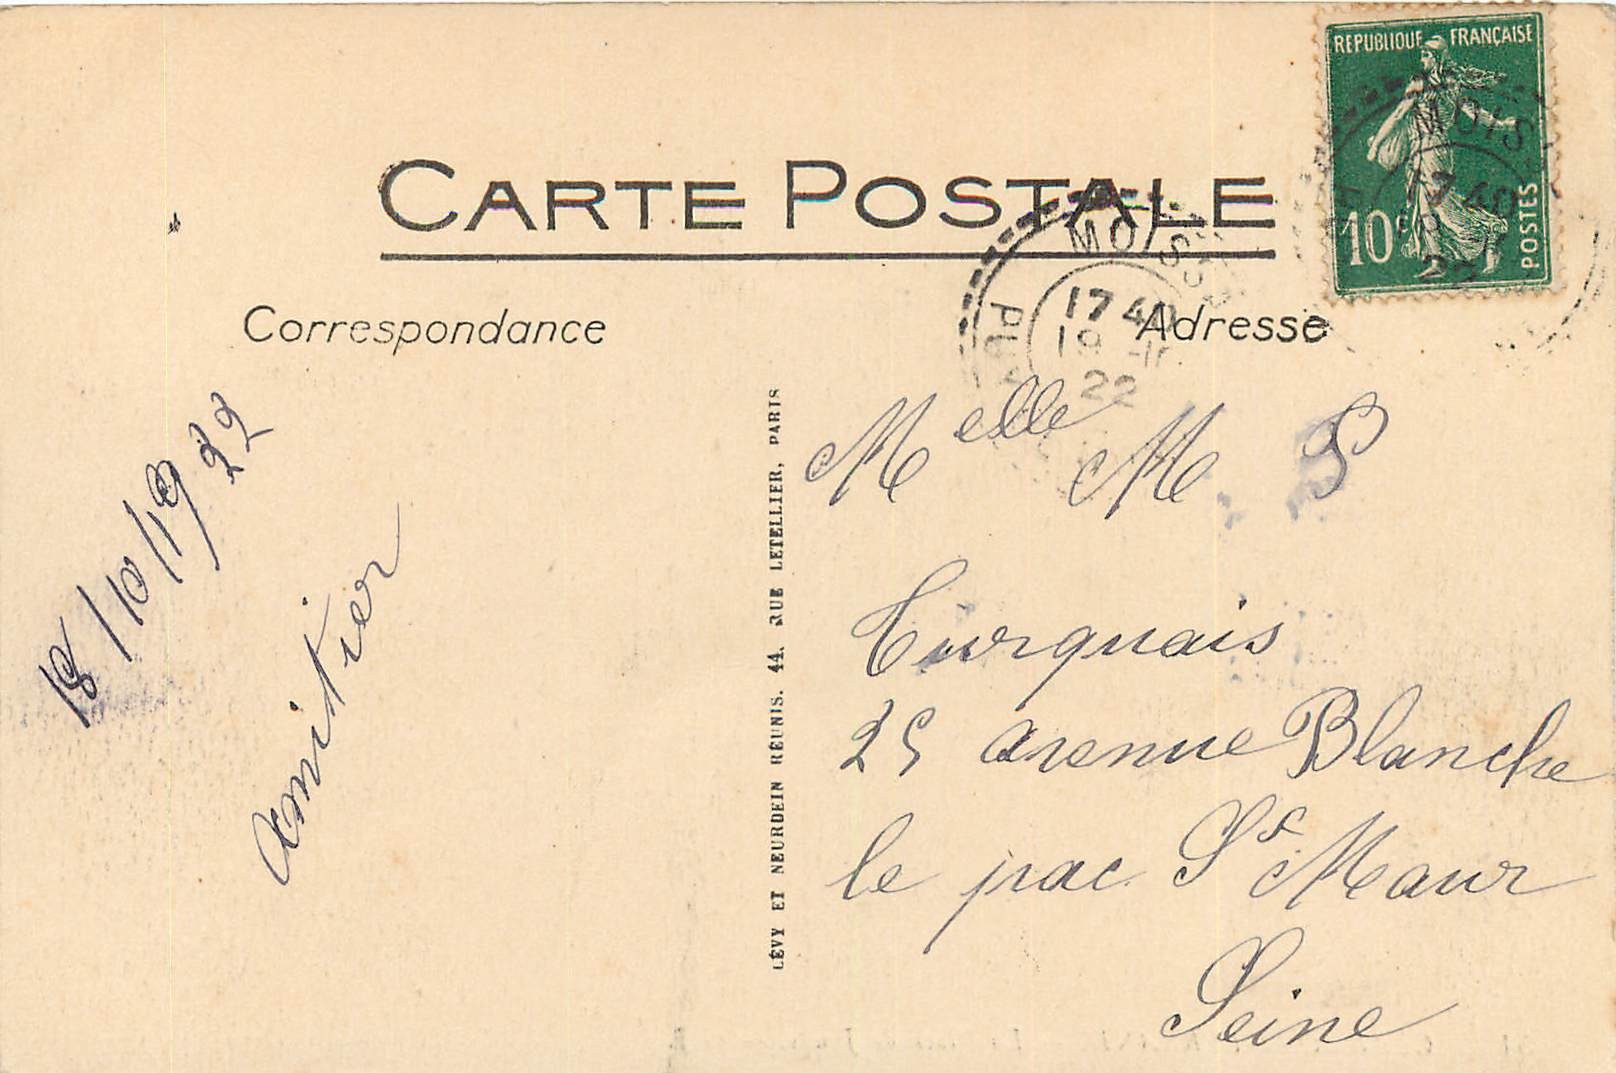 REPUBLIQUE FRANÇAISE
10c POSTES
CARTE POSTALE
Correspondance
Adresse
MOIS
17 40
22
MOISS
17 40
19
22
18/10/1922
amitier
LÉVY ET NEURDEIN RÉUNIS. 44, RUE LETELLIER, PARIS
Melle M P
Turquais
25 avenue Blanche
le prac St Maur
Seine